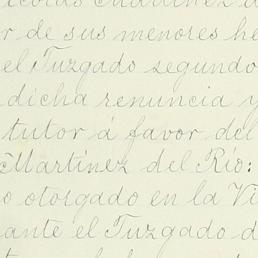 Nicolás Martínez d
r de sus menores he
el Juzgado segundo
dicha renuncia y
tutor á favor del
Martínez del Río:
o otorgado en la Vi
ante el Juzgado d